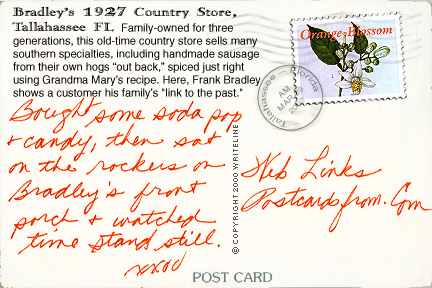 Bradley's 1927 Country Store,
Tallahassee FL Family-owned for three
generations, this old-time country store sells many
southern specialties, including handmade sausage
from their own hogs "out back," spiced just right
using Grandma Mary's recipe. Here, Frank Bradley
shows a customer his family's "link to the past."
Orange-Blossom
Tallahassee Florida
AM
MAR
Bought some soda pop
& candy, then sat
on the rockers on
Bradley's front
porch & watched
time stand still.
xxoo
© COPYRIGHT 2000 WRITELINE
Web Links
Postcardsfrom.Com
POST CARD